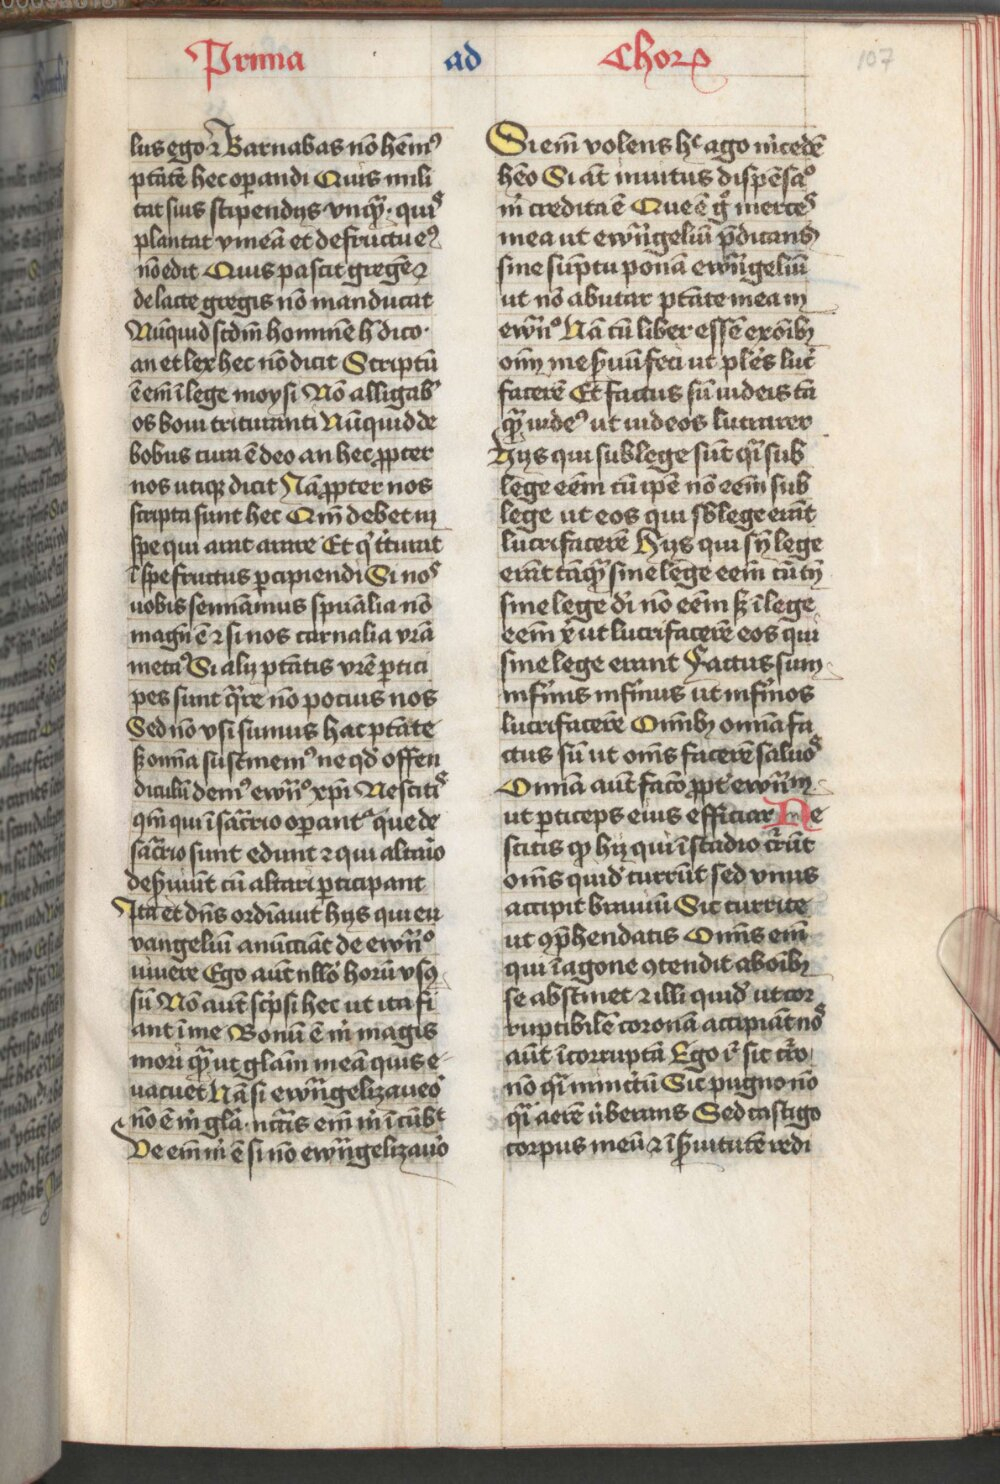 Prima ad Chorꝝ
107
lus ego ⁊ Barnabas nō hēmꝰ
ptātē hec operandi Quis mili
tat suis stipendijs vnqᷓ · quiˢ
plantat vineā et de fructu eiꝰ
nō edit Quis pascit gregē ⁊
de lacte gregis nō manducat
Nūquid scdm̄ hominē h̄ dico ·
an et lex hec nō dicit Scriptū
ē em̄ ī lege moysi Nō alligab̓
os boui trituranti Nūquid de
bobus cura ē deo an hec ꝓpter
nos utiqꝫ dicit Nā ꝓpter nos
scripta sunt hec Qm̄ debet in
spe qui arat arare Et qͥ t̓turat
ī spe fructus ꝑcipiendi Si noˢ
uobis seminamus spūalia nō
magn̄ ē ⁊ si nos carnalia vrā
metaꝰ Si alij ptātis vrē ꝑtici
pes sunt qᷓre nō pocius nos
Sed nō vsi sumus hac ptāte
sꝫ omīa sustinemꝰ ne qd̓ offen
diculū demꝰ ewn̄ꝰ xp̄i Nescitiˢ
qm̄ qui ī sac̓rio operant᷑ que de
sac̓rio sunt edunt ⁊ qui altaīo
deẜuiūt cū altari ꝑticipant
Ita et dn̄s ordīauit hijs qui eu
vangeliū anūciāt de ewn̄ꝰ
viuere Ego aūt nllō horū vsꝰ
sū Nō aūt sc̓psi hec ut ita fi
ant ī me Bonū ē m̓ magis
mori qᷓ ut gl̄am meā quis e
vacuet Nā si ewn̄gelizaueo᷑
nō ē m̓ gl̄a · nc̄cis em̄ m̓ īcūbᵗ
Ve em̄ m̓ ē si nō ewn̄gelizaūo
Si em̄ volens hͨ ago m̓cedē
hēo Si aūt inuitus dispēsaꝰ
m̓ credita ē Que ē gͦ mercesˢ
mea ut ewn̄geliū p̄dicans
sine sūptu ponā ewn̄geliū
ut nō abutar ptāte mea in
ewn̄ꝰ Nā cū liber essē ex oībꝫ
oīm me ẜuū feci ut pl̓es luc̓
facerē Et factus sū iudeis tā
qᷓ iudeꝰ ut iudeos lucrarer
Hijs qui sub lege sūt qᷓi sub
lege eēm cū ip̄e nō eēm sub
lege ut eos qui sb̄ lege erāt
lucrifacerē Hijs qui sn̄ lege
erāt tāqᷓ sine lege eēm cū
sine lege dī nō eēm sꝫ ī lege
eēm x̄ ut lucrifacerē eos qui
sine lege erant Factus sum
infīmis infīmus ut infīmos
lucrifacerē Omībꝫ omīa fa
ctus sū ut oms̄ facerē saluoˢ
Omīa aūt facō ꝓpt̓ ewn̄m
ut ꝑticeps eius efficiar Ne
scitis ꝙ hij qui ī stadio c̓rūt
oms̄ quid̓ currūt sed vnus
accipit brauiū Sic currite
ut ꝯp̄hendatis Omīs em̄
qui ī agone ꝯtendit ab oībꝫ
se abstinet ⁊ illi quid̓ ut cor
ruptibilē coronā accipiāt noˢ
aūt īcorruptā Ego iͬ sic c̓ro
nō qᷓi in inc̓tū Sic pugno nō
qᷓi aerē v̓berans Sed castigo
corpus meū ⁊ ī ẜuitutē redi